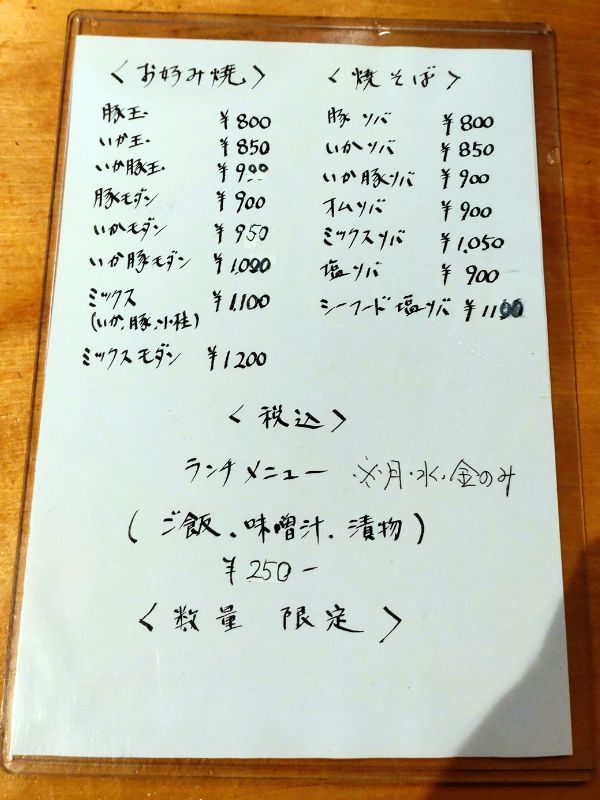 〈お好み焼〉
豚玉 ¥800
いか玉 ¥850
いか豚玉 ¥900
豚モダン ¥900
いかモダン ¥950
いか豚モダン ¥1,000
ミックス ¥1,100
(いか、豚、小柱)
ミックスモダン ¥1200
〈焼そば〉
豚ソバ ¥800
いかソバ ¥850
いか豚ソバ ¥900
オムソバ ¥900
ミックスソバ ¥1,050
塩ソバ ¥900
シーフード塩ソバ ¥1100
〈税込〉
ランチメニュー ※月・水・金のみ
(ご飯、味噌汁、漬物)
¥250-
〈数量 限定〉